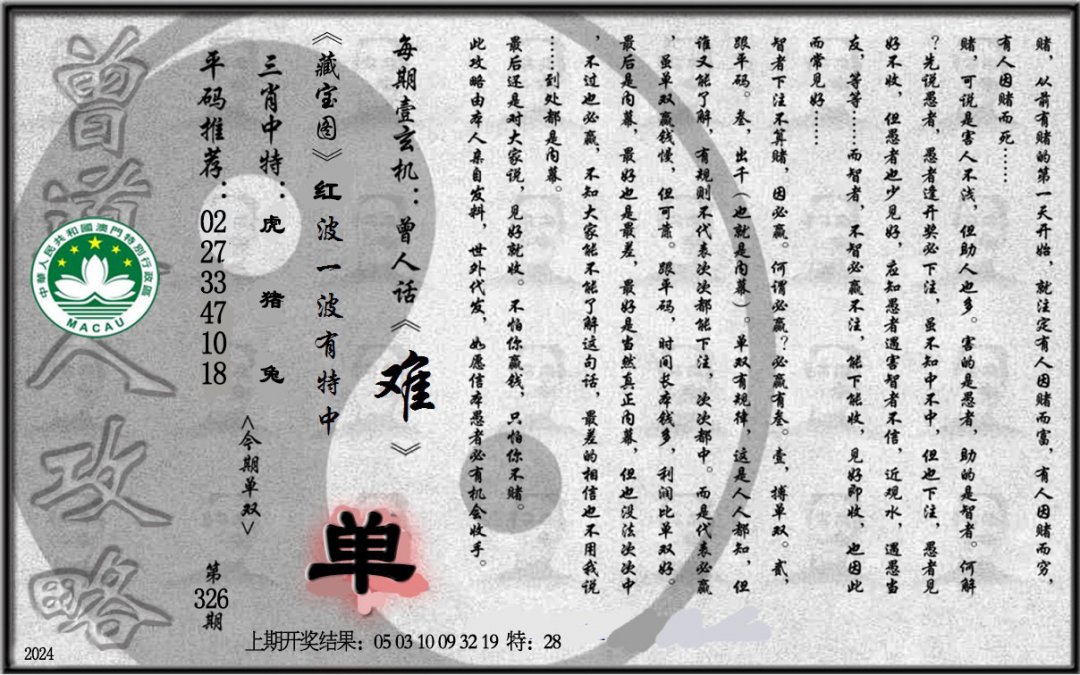 赌，从前有赌的第一天开始，就注定有人因赌而富，有人因赌而穷，
有人因赌而死……
赌，可说是害人不浅，但助人也多。害的是愚者，助的是智者。何解
？先说愚者，愚者逢开奖必下注，虽不知中不中，但也下注，愚者见
好不收，但愚者也少见好，应知愚者遇害智者不信，近观水，遇愚当
友，等等……而智者，不智必赢不注，能下能收，见好即收，也因此
而常见好……
智者下注不算赌，因必赢。何谓必赢？必赢有叁。壹，搏单双。贰，
跟平码。叁，出千（也就是内幕）。单双有规律，这是人人都知，但
谁又能了解，有规则不代表次次都能下注，次次都中。而是代表必赢
，虽单双赢钱慢，但可靠。跟平码，时间长本钱多，利润比单双好。
最后是内幕，最好也是最差，最好是当然真正内幕，但也没法次次中
，不过也必赢，不知大家能不能了解这句话，最差的相信也不用我说
……到处都是内幕。
最后还是对大家说，见好就收。不怕你赢钱，只怕你不赌。
此攻略由本人亲自发料，世外代发，如愿信本愚者必有机会收手。
每期壹玄机：曾人话《难》
《藏宝图》红波一波有特中
三肖中特：虎 猪 兔
平码推荐：02 27 33 47 10 18
<今期单双>
单
第326期
曾道人攻略
中華人民共和國澳門特別行政區
MACAU
上期开奖结果：05 03 10 09 32 19 特：28
2024